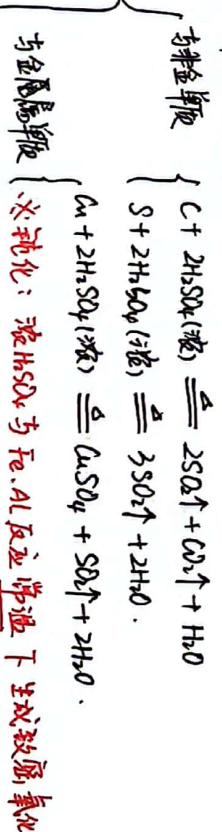 与非金单质
C + 2H₂SO₄(浓) ≜ 2SO₂↑ + CO₂↑ + H₂O
S + 2H₂SO₄(浓) ≜ 3SO₂↑ + 2H₂O.
与金属单质
Cu + 2H₂SO₄(浓) ≜ CuSO₄ + SO₂↑ + 2H₂O.
※钝化：浓H₂SO₄与Fe.Al反应常温下生成致密氧化